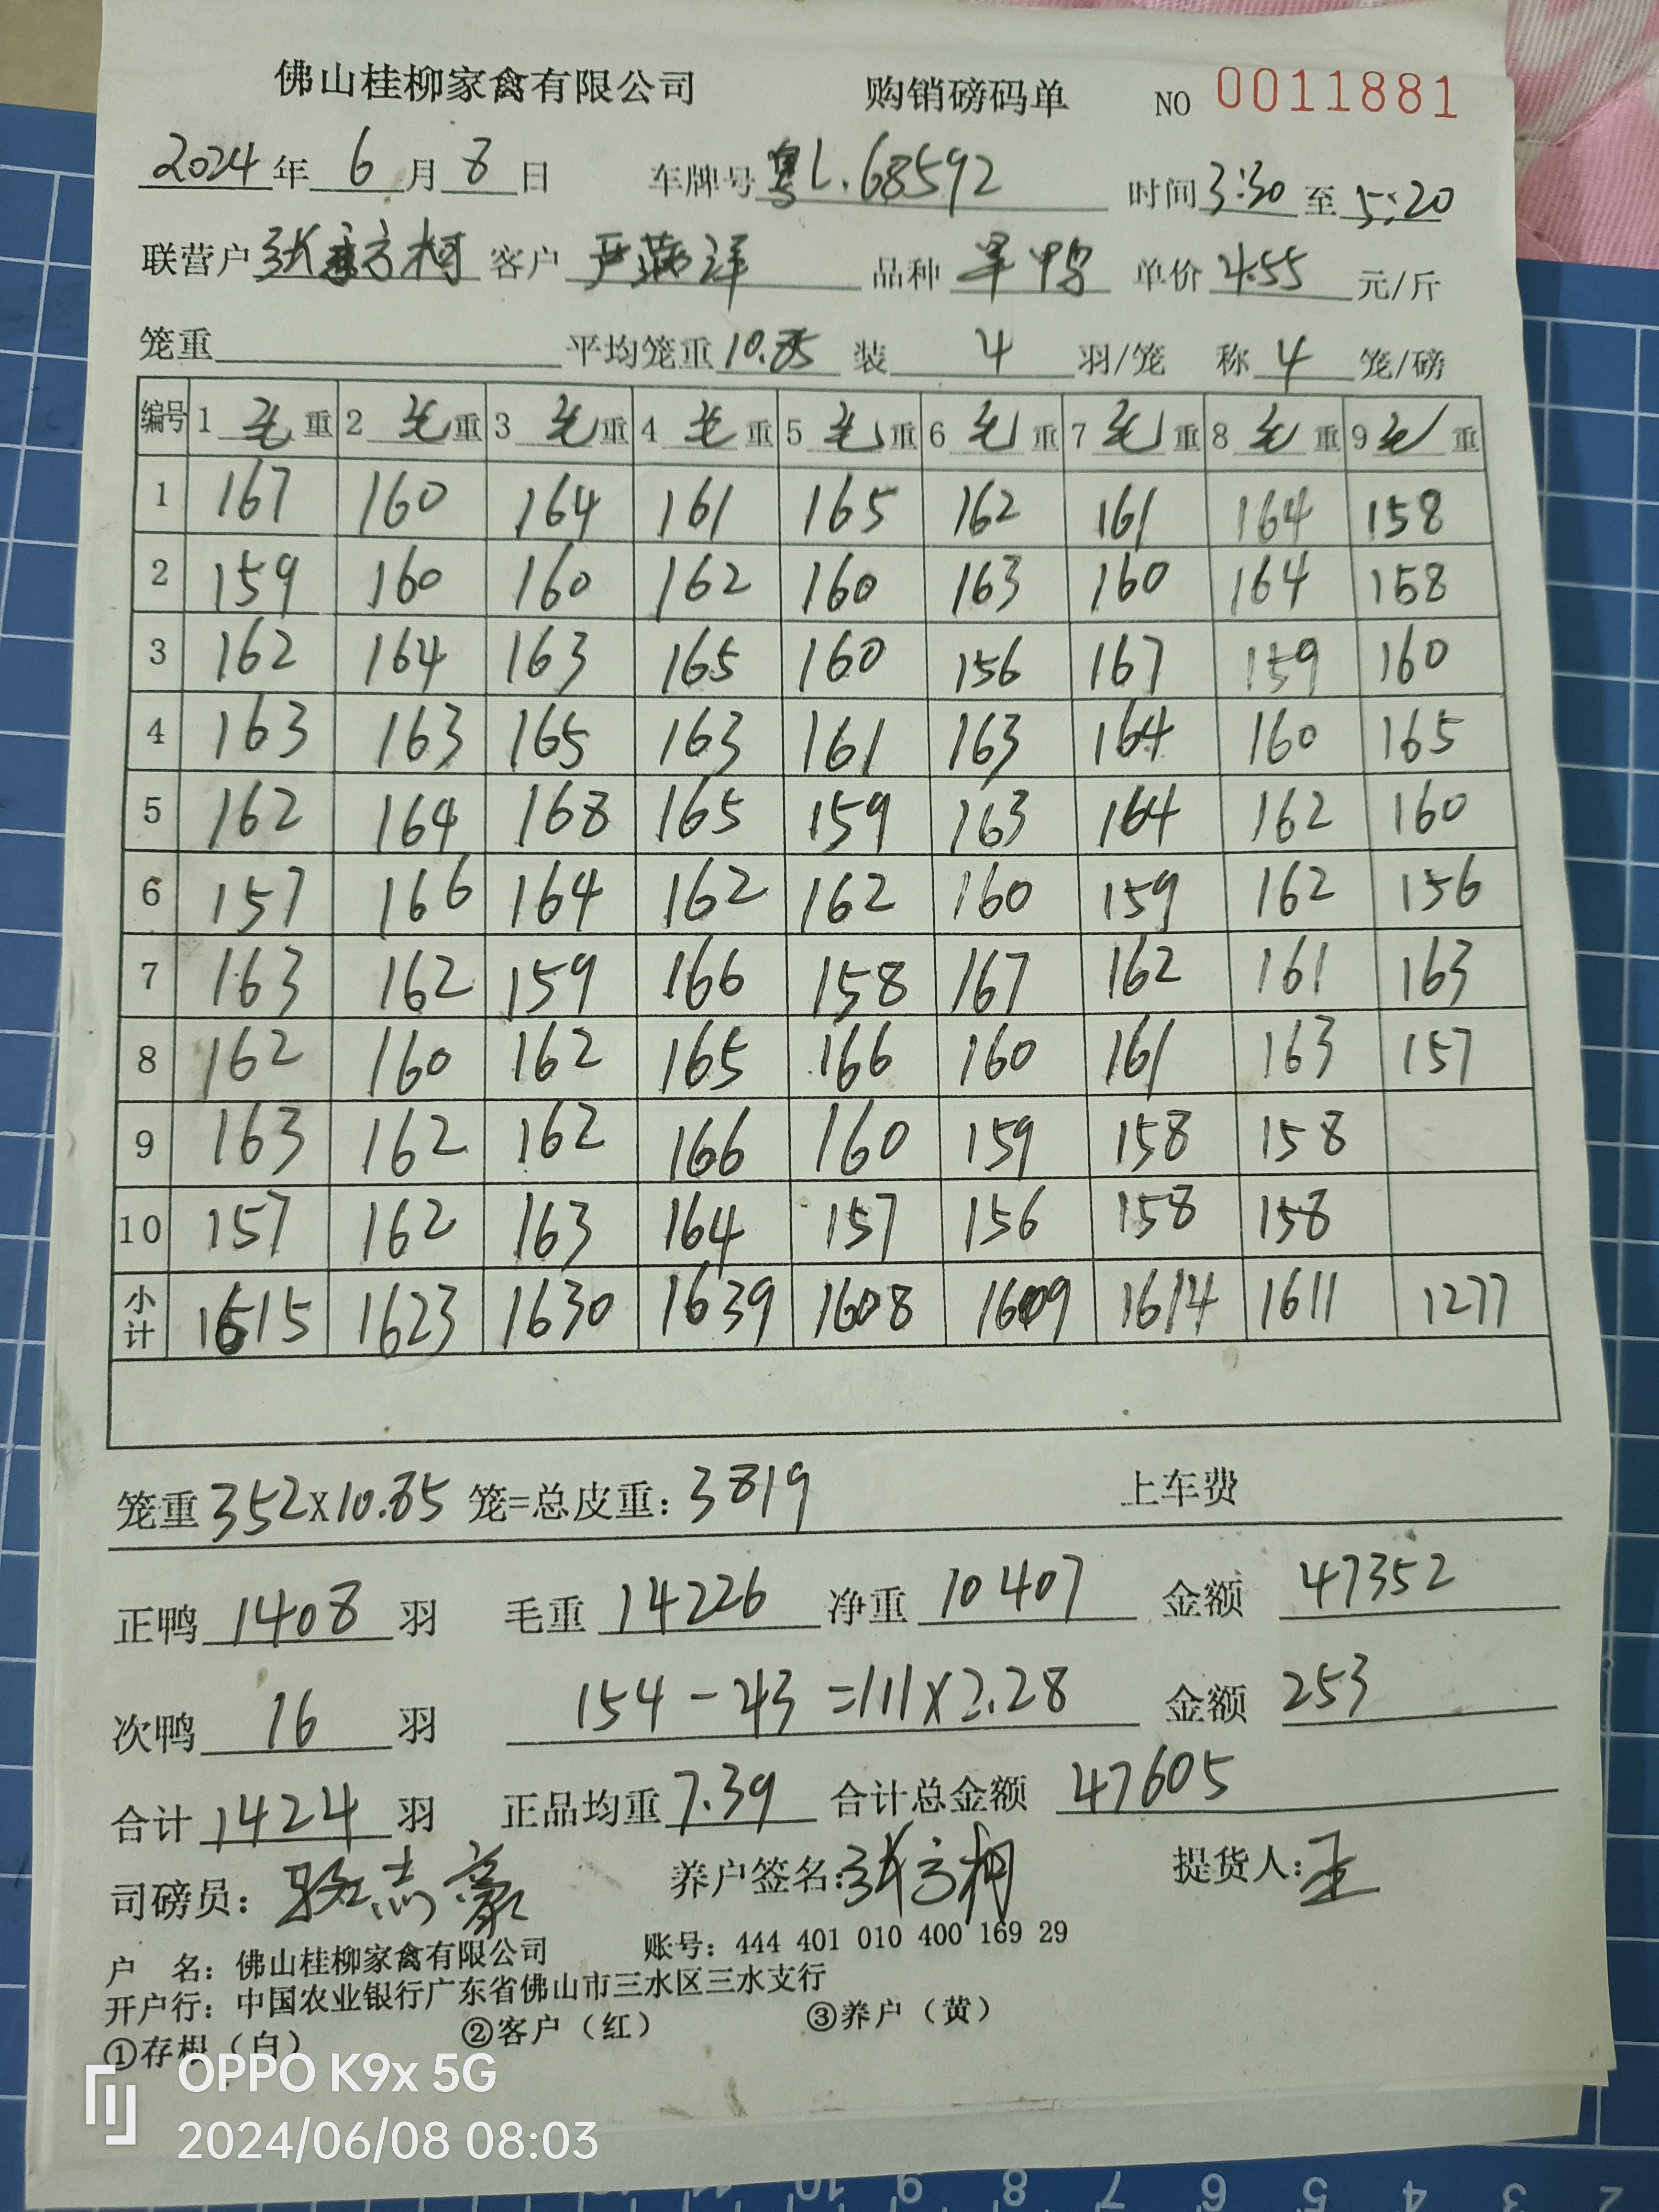 佛山桂柳家禽有限公司 购销磅码单 NO 0011881
2024年 6月 8日 车牌号 粤L.68592 时间 3:30 至 5:20
联营户 张方柯 客户 严 洋 品种 旱鸭 单价 4.55 元/斤
笼重 平均笼重 10.85 装 4 羽/笼 称 4 笼/磅
编号 1 毛重 2 毛重 3 毛重 4 毛重 5 毛重 6 毛重 7 毛重 8 毛重 9 毛重
1 167 160 164 161 165 162 161 164 158
2 159 160 160 162 160 163 160 164 158
3 162 164 163 165 160 156 167 159 160
4 163 163 165 163 161 163 164 160 165
5 162 164 168 165 159 163 164 162 160
6 157 166 164 162 162 160 159 162 156
7 163 162 159 166 158 167 162 161 163
8 162 160 162 165 166 160 161 163 157
9 163 162 162 166 160 159 158 158
10 157 162 163 164 157 156 158 158
小计 1615 1623 1630 1639 1608 1609 1614 1611 1277
笼重 352X10.85 笼=总皮重: 3819 上车费
正鸭 1408 羽 毛重 14226 净重 10407 金额 47352
次鸭 16 羽 154-43=111X2.28 金额 253
合计 1424 羽 正品均重 7.39 合计总金额 47605
司磅员: 骆志豪 养户签名: 张方柯 提货人: 王
户 名: 佛山桂柳家禽有限公司 账号: 444 401 010 400 169 29
开户行: 中国农业银行广东省佛山市三水区三水支行
①存根(白) ②客户(红) ③养户(黄)
OPPO K9x 5G
2024/06/08 08:03
10 9 8 7 6 5 4 3 2